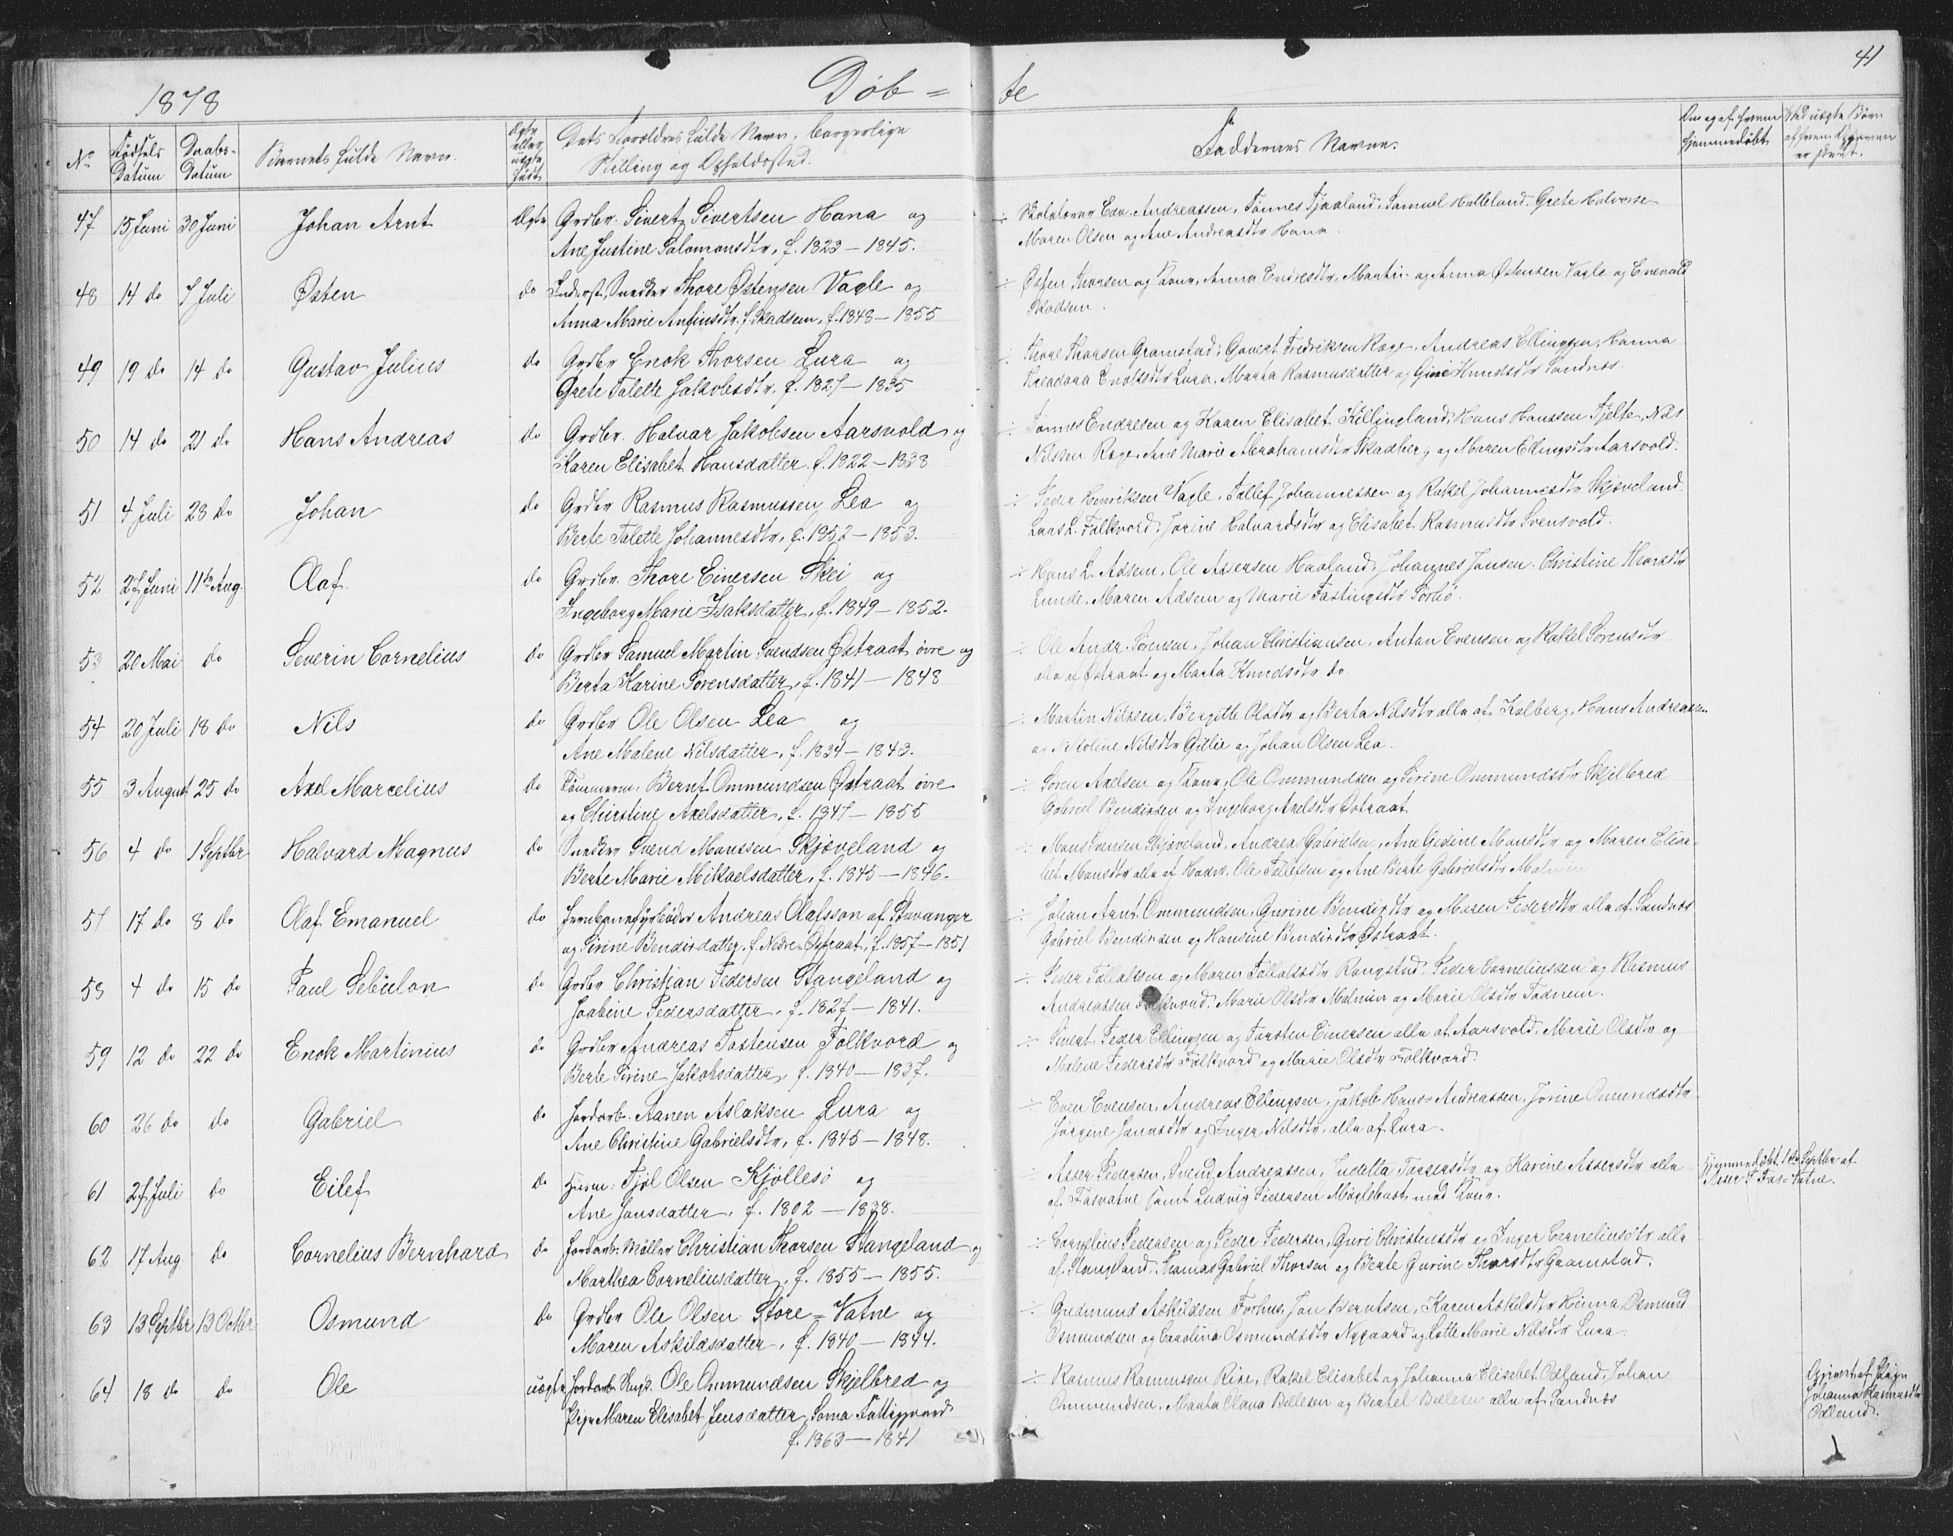 1878
Døb=
te
41
No
Fødsels Datum
Daabs-Datum
Barnets fulde Navn.
Ægte eller uægte født
Dets Forældres fulde Navn, borgerlige
Stilling og Opholdssted.
Faddernes Navne.
Om og af hvem hjemmedøbt
Ved uægte Børn af hvem Opgaven er skeet.
47 15 Juni 30 Juni Johan Arnt Ægte Grdbr. Sivert Sivertsen Hana og
Ane Justine Salomonsdtr, f. 1823 – 1845.
÷ Andreassen, Tønnes Tjaaland, Samuel Halleland, Grete Halvorse
Maren Olsen og Ane Andreasdtr Hana.
48 14 do 7 Juli Østen do Inderst, Snedker Thore Østensen Vagle og
Anna Marie Anfinsdtr. f. Skadsem, f. 1848 – 1855
÷ Østen Thorsen og Kone, Anna Endresdtr, Martin og Anna Østensen Vagle og Enevald
Skadsem.
49 19 do 14 do Gustav Julius do Grdbr Enok Thorsen Lura og
Grete Talette Jakobsdtr. f. 1827 – 1835
÷ Thore Thorsen Gramstad, Govert Fredriksen Rage, Andreas Ellingsen, Hanna
Theadora Enoksdtr Lura, Marta Rasmusdatter og Knudsdtr Sandnæs.
50 14 do 21 do Hans Andreas do Grdbr. Halvar Jakobsen Aarsvold og
Karen Elisabet Hansdatter f. 1822 – 1838
÷ Tønnes Endresen og Karen Elisabet Killingland, Hans Hanssen Tjelte, Nils
Nilssen Rage, Ane Marie Abrahamsdtr Skadberg og Maren Ellingsdtr Aarsvold.
51 4 Juli 28 do Johan do Grdbr Rasmus Rasmussen Lea og
Berte Talette Johannesdtr, f. 1852 – 1853.
÷ Peder Henriksen Vagle, Tollef Johannessen og Rakel Johannesdtr Skjæveland
Lars L. Folkvord, Jorine Halvardsdtr og Elisabet Rasmusdtr Svensvold.
52 27 Juni 11te Aug. Olaf do Grdbr. Thore Einersen Skei og
Ingeborg Marie Isaksdatter, f. 1849 – 1852.
÷ L. Adsem, Ole Assersen Haaland, Johannes Jonsen, Christine
Lunde, Maren Adsem og Marie Fastingsdtr Sørbø.
53 20 Mai do Severin Cornelius do Grdbr Samuel Martin Svendsen Østraat øvre og
Berta Karine Sørensdatter, f. 1841 – 1848
÷ Ole Andr. Sørensen, Johan Christiansen, Anton Evensen og Rakel Sørensdtr
alle af Østraat og Marta Knudsdtr do.
54 20 Juli 18 do Nils do Grdbr Ole Olsen Lea og
Ane Malene Nilsdatter, f. 1834 – 1843.
÷ Martin Nilssen, Bergitte Olsdtr og Berta Nilsdtr alle af Kalberg, Hans Andreassen
og Nikoline Nilsdtr Gillie og Johan Olsen Lea.
55 3 August 25 do Axel Marcelius do Tømmerm. Bernt Ommundsen Østraat øvre
og Christine Axelsdatter, f. 1847 – 1855
÷ Søren Axelsen og Kone, Ole Ommundsen og Sirine Ommundsdtr Skjelbred
Gabriel Bendiksen og Ingeborg Axelsdtr Østraat
56 4 do 1 Septbr Halvard Magnus do Snedker Svend Monssen Skjæveland og
Berte Marie Mikkaelsdatter, f. 1845 – 1846.
÷ Mons Svensen Skjæveland, Andreas Gabrielsen, Ane Gesine Monsdtr og Maren Elisa-
bet Monsdtr alle af Ole Tollefsen og Ane Berte Gabrielsdtr
57 17 do 8 do Olaf Emanuel do Jernbanefyrbøder Andreas Olafsson af Stavanger
og Sirine Bendixdatter, f. Nedre-Østraat, f. 1857 – 1851
÷ Johan Arnt Ommundsen, Gurine Bendixdtr og Maren Pedersdtr alle af Sandnæs
Gabriel Bendixsen og Hansine Bendixdtr Østraat.
58 4 do 15 do Paul Sebulon do Grdbr Christian Pedersen Stangeland og
Jaabine Pedersdatter, f. 1827 – 1841.
÷ Peder Tollaksen og Maren Tollaksdtr Rongstad, Peder Corneliussen og Rasmus
Andreassen Folkvord, Marie Olsdtr Malmin og Marie Olsdtr Fadnem.
59 12 do 22 do Enok Martinius do Grdbr Andreas Tostensen Folkvord og
Berte Sirine Jakobsdatter, f. 1840 – 1837.
÷ Sivert Peder Ellingsen og Torsten Einersen alle af Aarsvold, Marie Olsdtr og
Malene Pedersdtr Folkvord og Marie Olsdtr Folkvord.
60 26 do do Gabriel do Jordarb. Aanen Aslaksen Lura og
Ane Christine Gabrielsdtr, f. 1845 – 1848.
÷ Even Evensen, Andreas Ellingsen, Jakob Hans Andreassen, Jorine Omundsdtr
Jørgine Jonasdtr og Inger Nilsdtr alle af Lura.
61 27 Juli do Eilef do Tjøl Olsen Kjøllesø og
Ane Jonsdatter, f. 1802 – 1838.
÷ Asser Pedersen, Svend Andreassen, Indetta Torgersdtr og Karine Assersdtr alle
af Fosvatne samt Ludvig Pedersen Møglebust med Kone.
Hjemmedøbt 1ste Septbr af
Asser P. Fos-Vatne.
62 17 Aug do Cornelius Bernhard do Jordarb. Møller Christian Thorsen Stangeland og
Marthea Corneliusdatter, f. 1855 – 1855.
÷ Cornelius Pedersen og Peder Pedersen, Guri Christensdtr og Inger Corneliusdtr alle
af Stangeland, Thomas Gabriel Thorsen og Berte Gurine Thorsdtr Gramstad.
63 13 Septbr 13 Octbr Osmund do Grdbr Ole Olsen Store-Vatne og
Maren Askildsdatter, f. 1840 – 1844.
÷ Gudmund Askildsen Forhus, Jon Berntsen, Karen Askilsdtr Hinna, Osmund
Osmundsen og Carolina Osmundsdtr Nygaard og Lotte Marie Nilsdtr Lura.
64 18 do do Ole uægte Jordarb. Ungk. Ole Ommundsen Skjelbred og
Pige Maren Elisabet Jensdatter, Soma Fattiggaard
f. 1863 – 1841
÷ Rasmus Rasmussen Rise, Rakel Elisabet og Johanna Elisabet Ødland, Johan
Ommundsen, Marta Olava Bellesen og Bertel Bellesen alle af Sandnæs
Opgivet af Pige
Johanna Rasmusdtr
Ødland.